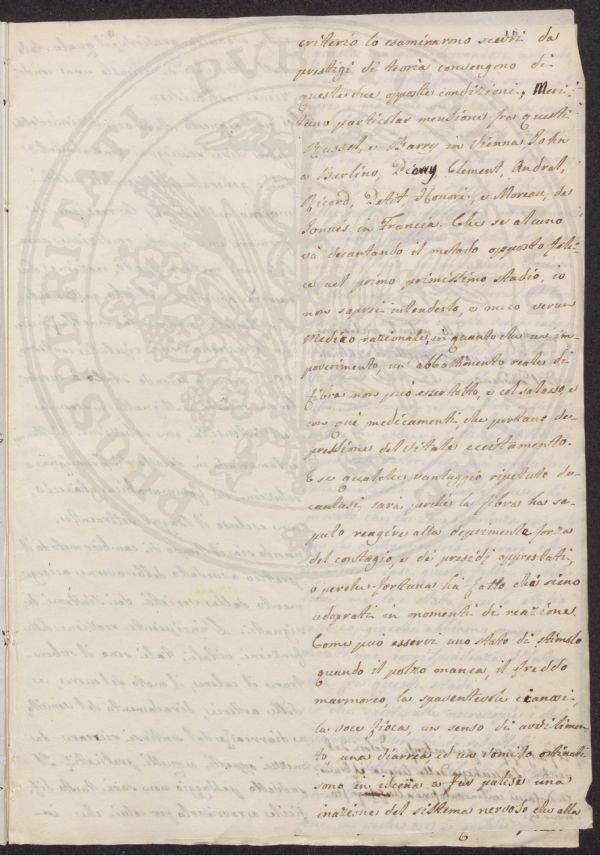 criterio lo esaminarono scevri da
prestigi di teoria convengono di
queste due opposte condizioni. Meri-
tano particolar menzione fra questi
Russel, e Barry in Vienna John
a Berlino, Clement, Andral,
Ricord, Petit Honorè, e Moreau, de
Jonnes, in Francia. Che se alcuno
và decantando il metodo opposto feli-
ce nel primo primissimo stadio, io
non saprei intenderlo, e meco verun
Medico razionale, in quanto che un im-
poverimento, un abbattimento reale di
fibra non può esser tolto, e col salasso, e
con què medicamenti, che portano de-
pressione del vitale eccitamento.
E se qualche vantaggio ripetuto de-
cantasi, sarà perchè la fibra ha sa-
puto reagire alla deprimente forza
del contagio, e dè presidj apprestati,
o perchè fortuna ha fatto che sieno
adoprati in momenti di reazione.
Come può esservi uno stato di stimolo
quando il polzo manca, il freddo
marmoreo, la spaventevole cianosi,
la voce fioca, un senso di avvilimen-
to, una diarrea ed un vomito ostinati
sono in iscena a far palese una
inazione del sistema nervoso che alla
6
PROSPERITATI